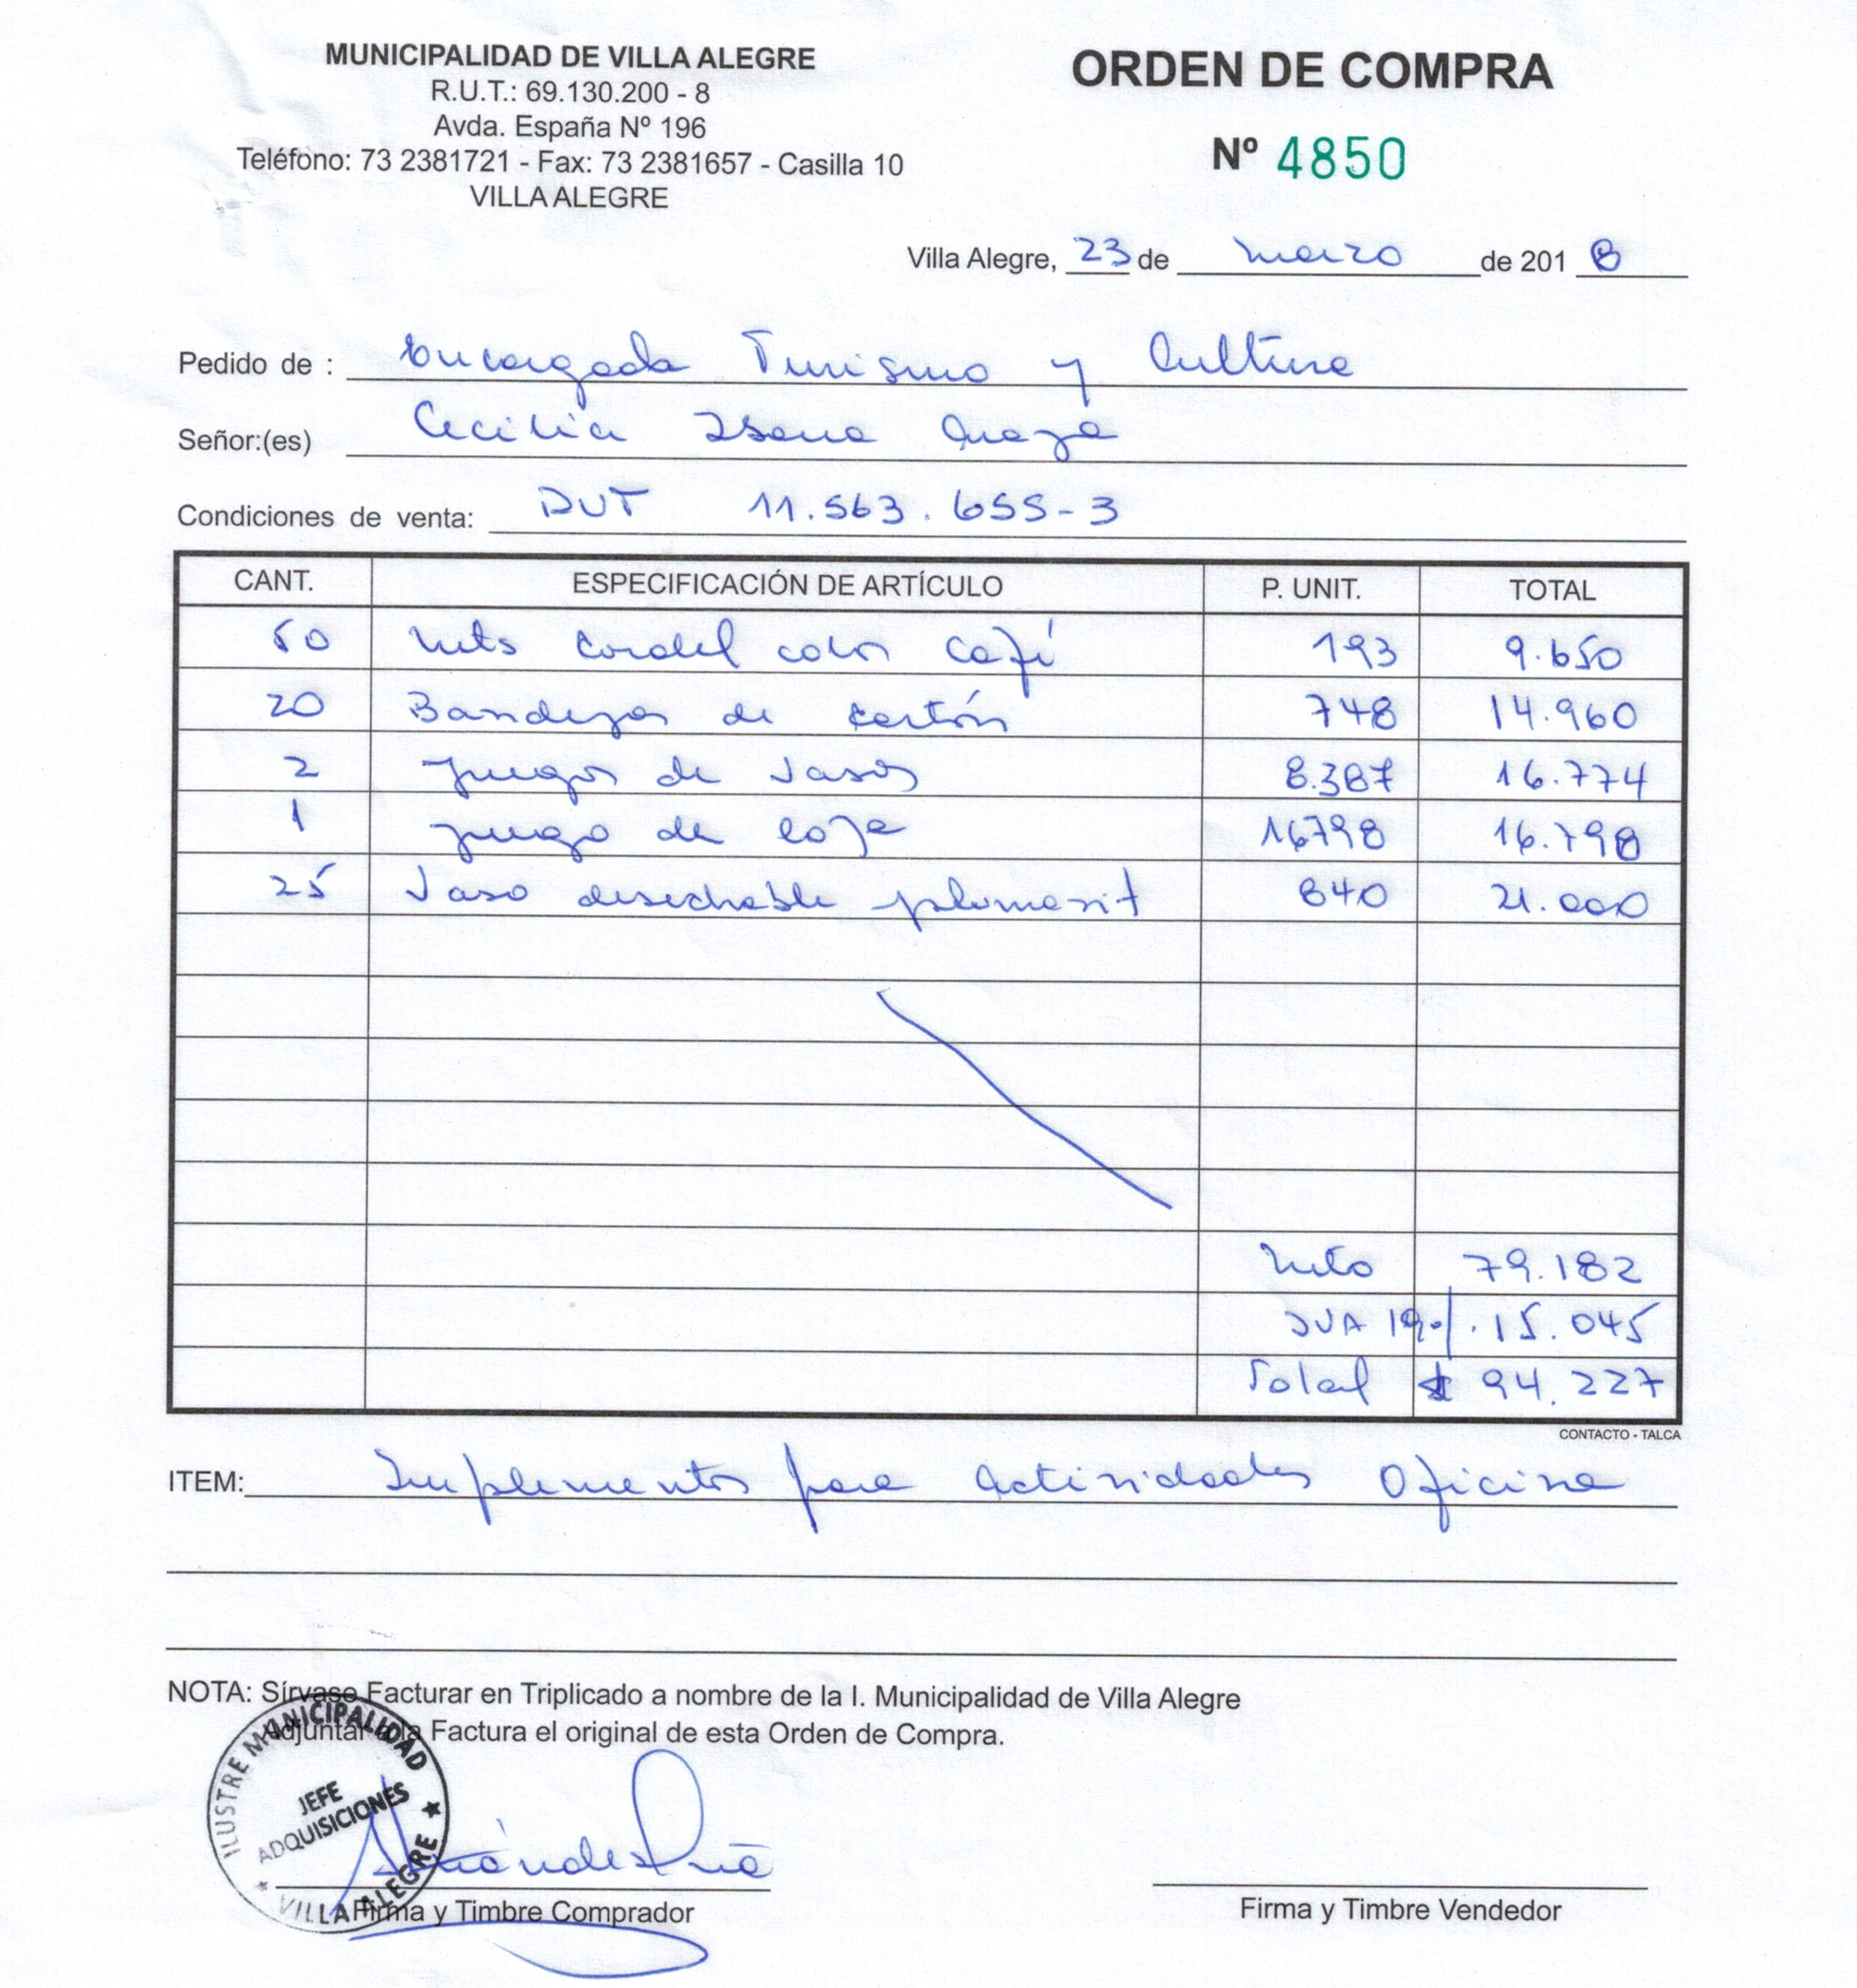 MUNICIPALIDAD DE VILLA ALEGRE
R.U.T.: 69.130.200 - 8
Avda. España Nº 196
Teléfono: 73 2381721 - Fax: 73 2381657 - Casilla 10
VILLA ALEGRE
ORDEN DE COMPRA
Nº 4850
Villa Alegre, 23 de marzo de 2018
Pedido de : Encargada Turismo y Cultura
Señor:(es) Cecilia
Condiciones de venta: RUT 11.563.655-3
CANT. ESPECIFICACIÓN DE ARTÍCULO P. UNIT. TOTAL
50 Mts cordel color café 193 9.650
20 Bandejas de cartón 748 14.960
2 juegos de vasos 8.387 16.774
1 juego de loza 16798 16.798
25 Vaso desechable plumavit 840 21.000
Neto 79.182
IVA 19% 15.045
Total $ 94.227
CONTACTO - TALCA
ITEM: Implementos para actividades Oficina
NOTA: Sírvase Facturar en Triplicado a nombre de la I. Municipalidad de Villa Alegre
Adjuntar a la Factura el original de esta Orden de Compra.
ILUSTRE MUNICIPALIDAD
JEFE
ADQUISICIONES
VILLA ALEGRE
Firma y Timbre Comprador
Firma y Timbre Vendedor